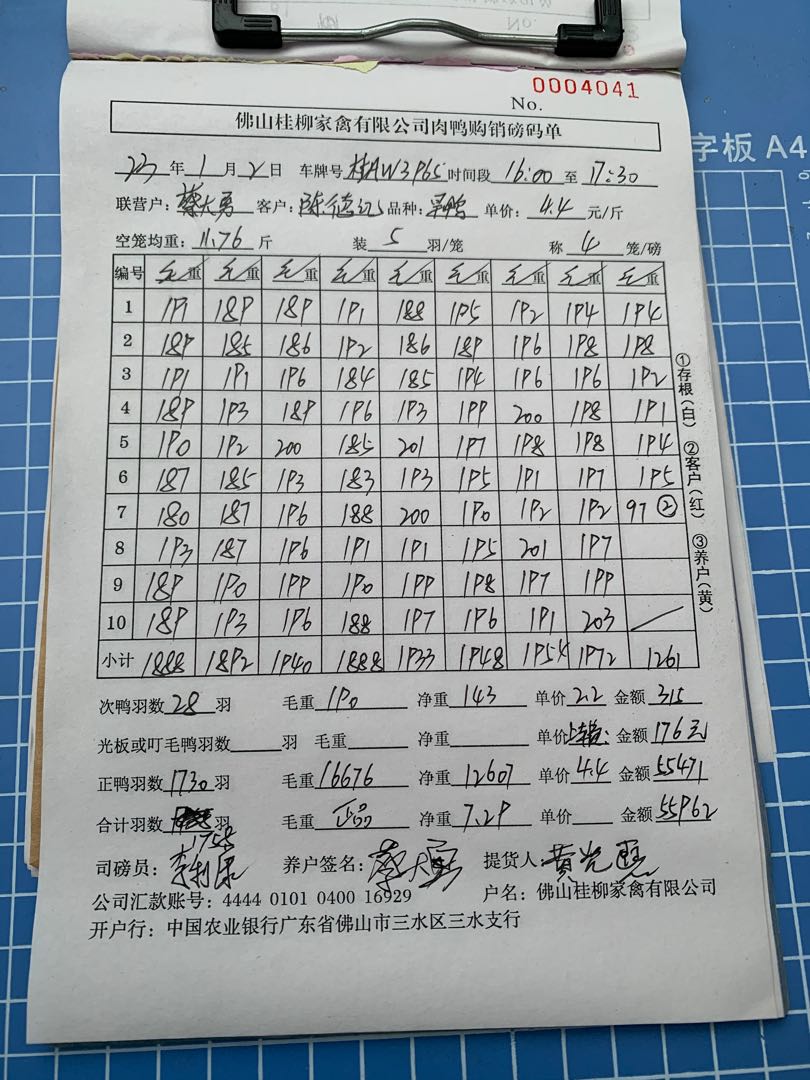 No. 0004041
佛山桂柳家禽有限公司肉鸭购销磅码单
23年1月2日 车牌号桂AW3965时间段16:00至17:30
联营户:蔡大勇 客户:陈德记品种:呆鸭 单价:4.4元/斤
空笼均重:11.76斤 装5羽/笼 称4笼/磅
编号 毛重 毛重 毛重 毛重 毛重 毛重 毛重 毛重 毛重
1 191 189 189 191 188 195 192 194 194
2 189 185 186 192 186 189 196 198 198
3 191 191 196 184 185 194 196 196 192
4 189 193 189 196 193 199 200 198 191
5 190 192 200 185 201 197 198 198 194
6 187 185 193 183 193 195 191 197 195
7 180 187 196 188 200 190 192 192 97②
8 193 187 196 191 191 195 201 197
9 189 190 199 190 199 198 197 199
10 189 193 196 188 197 196 191 203 /
小计 1888 1892 1940 1888 1933 1948 1954 1972 1261
①存根(白) ②客户(红) ③养户(黄)
次鸭羽数28羽 毛重190 净重143 单价2.2 金额315
光板或叮毛鸭羽数 羽 毛重 净重 单价 金额176元
正鸭羽数1730羽 毛重16676 净重12607 单价4.4 金额55471
合计羽数1758羽 毛重正品 净重7.29 单价 金额55962
司磅员:李利 养户签名:蔡大勇 提货人:黄
公司汇款账号:4444 0101 0400 16929 户名:佛山桂柳家禽有限公司
开户行:中国农业银行广东省佛山市三水区三水支行
字板 A4